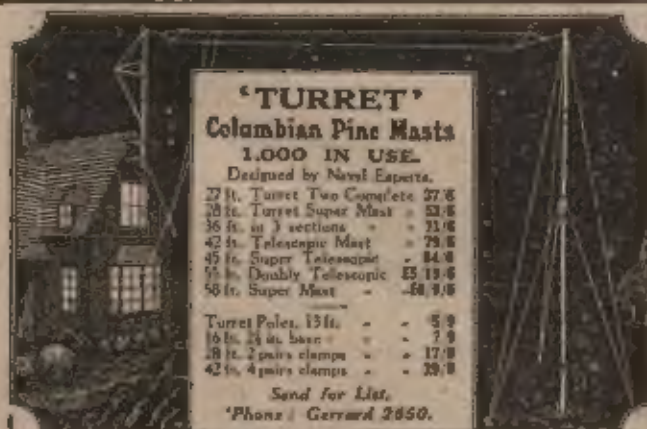 ‘TURRET’
Columbian Pine Masts
1.000 IN USE.
Designed by Naval Experts.
27 ft. Turret Two Complete 37/6
28 ft. Turret Super Mast 53/6
36 ft. in 3 sections 71/6
42 ft. Telescopic Mast 79/6
45 ft. Super Telescopic 84/6
55 ft. Doubly Telescopic £5/15/6
58 ft. Super Mast
Turret Poles, 15 ft. 5/9
16 ft. base 7/9
28 ft. 2 pairs clamps 17/6
42 ft. 4 pairs clamps
Send for List.
'Phone: Gerrard 2650.